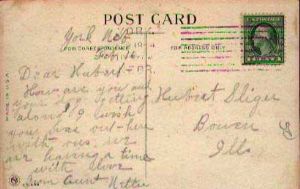 POST CARD
York Neb
FOR CORRESPONDENCE
FOR ADDRESS ONLY
Feb 16
Dear Hubert
How are you and
your getting
along I wish
you was out here
with us, we
are having a time
with love
from Aunt Nettie
Hubert Sliger
Bowen
Ills
MADE IN U.S.A.